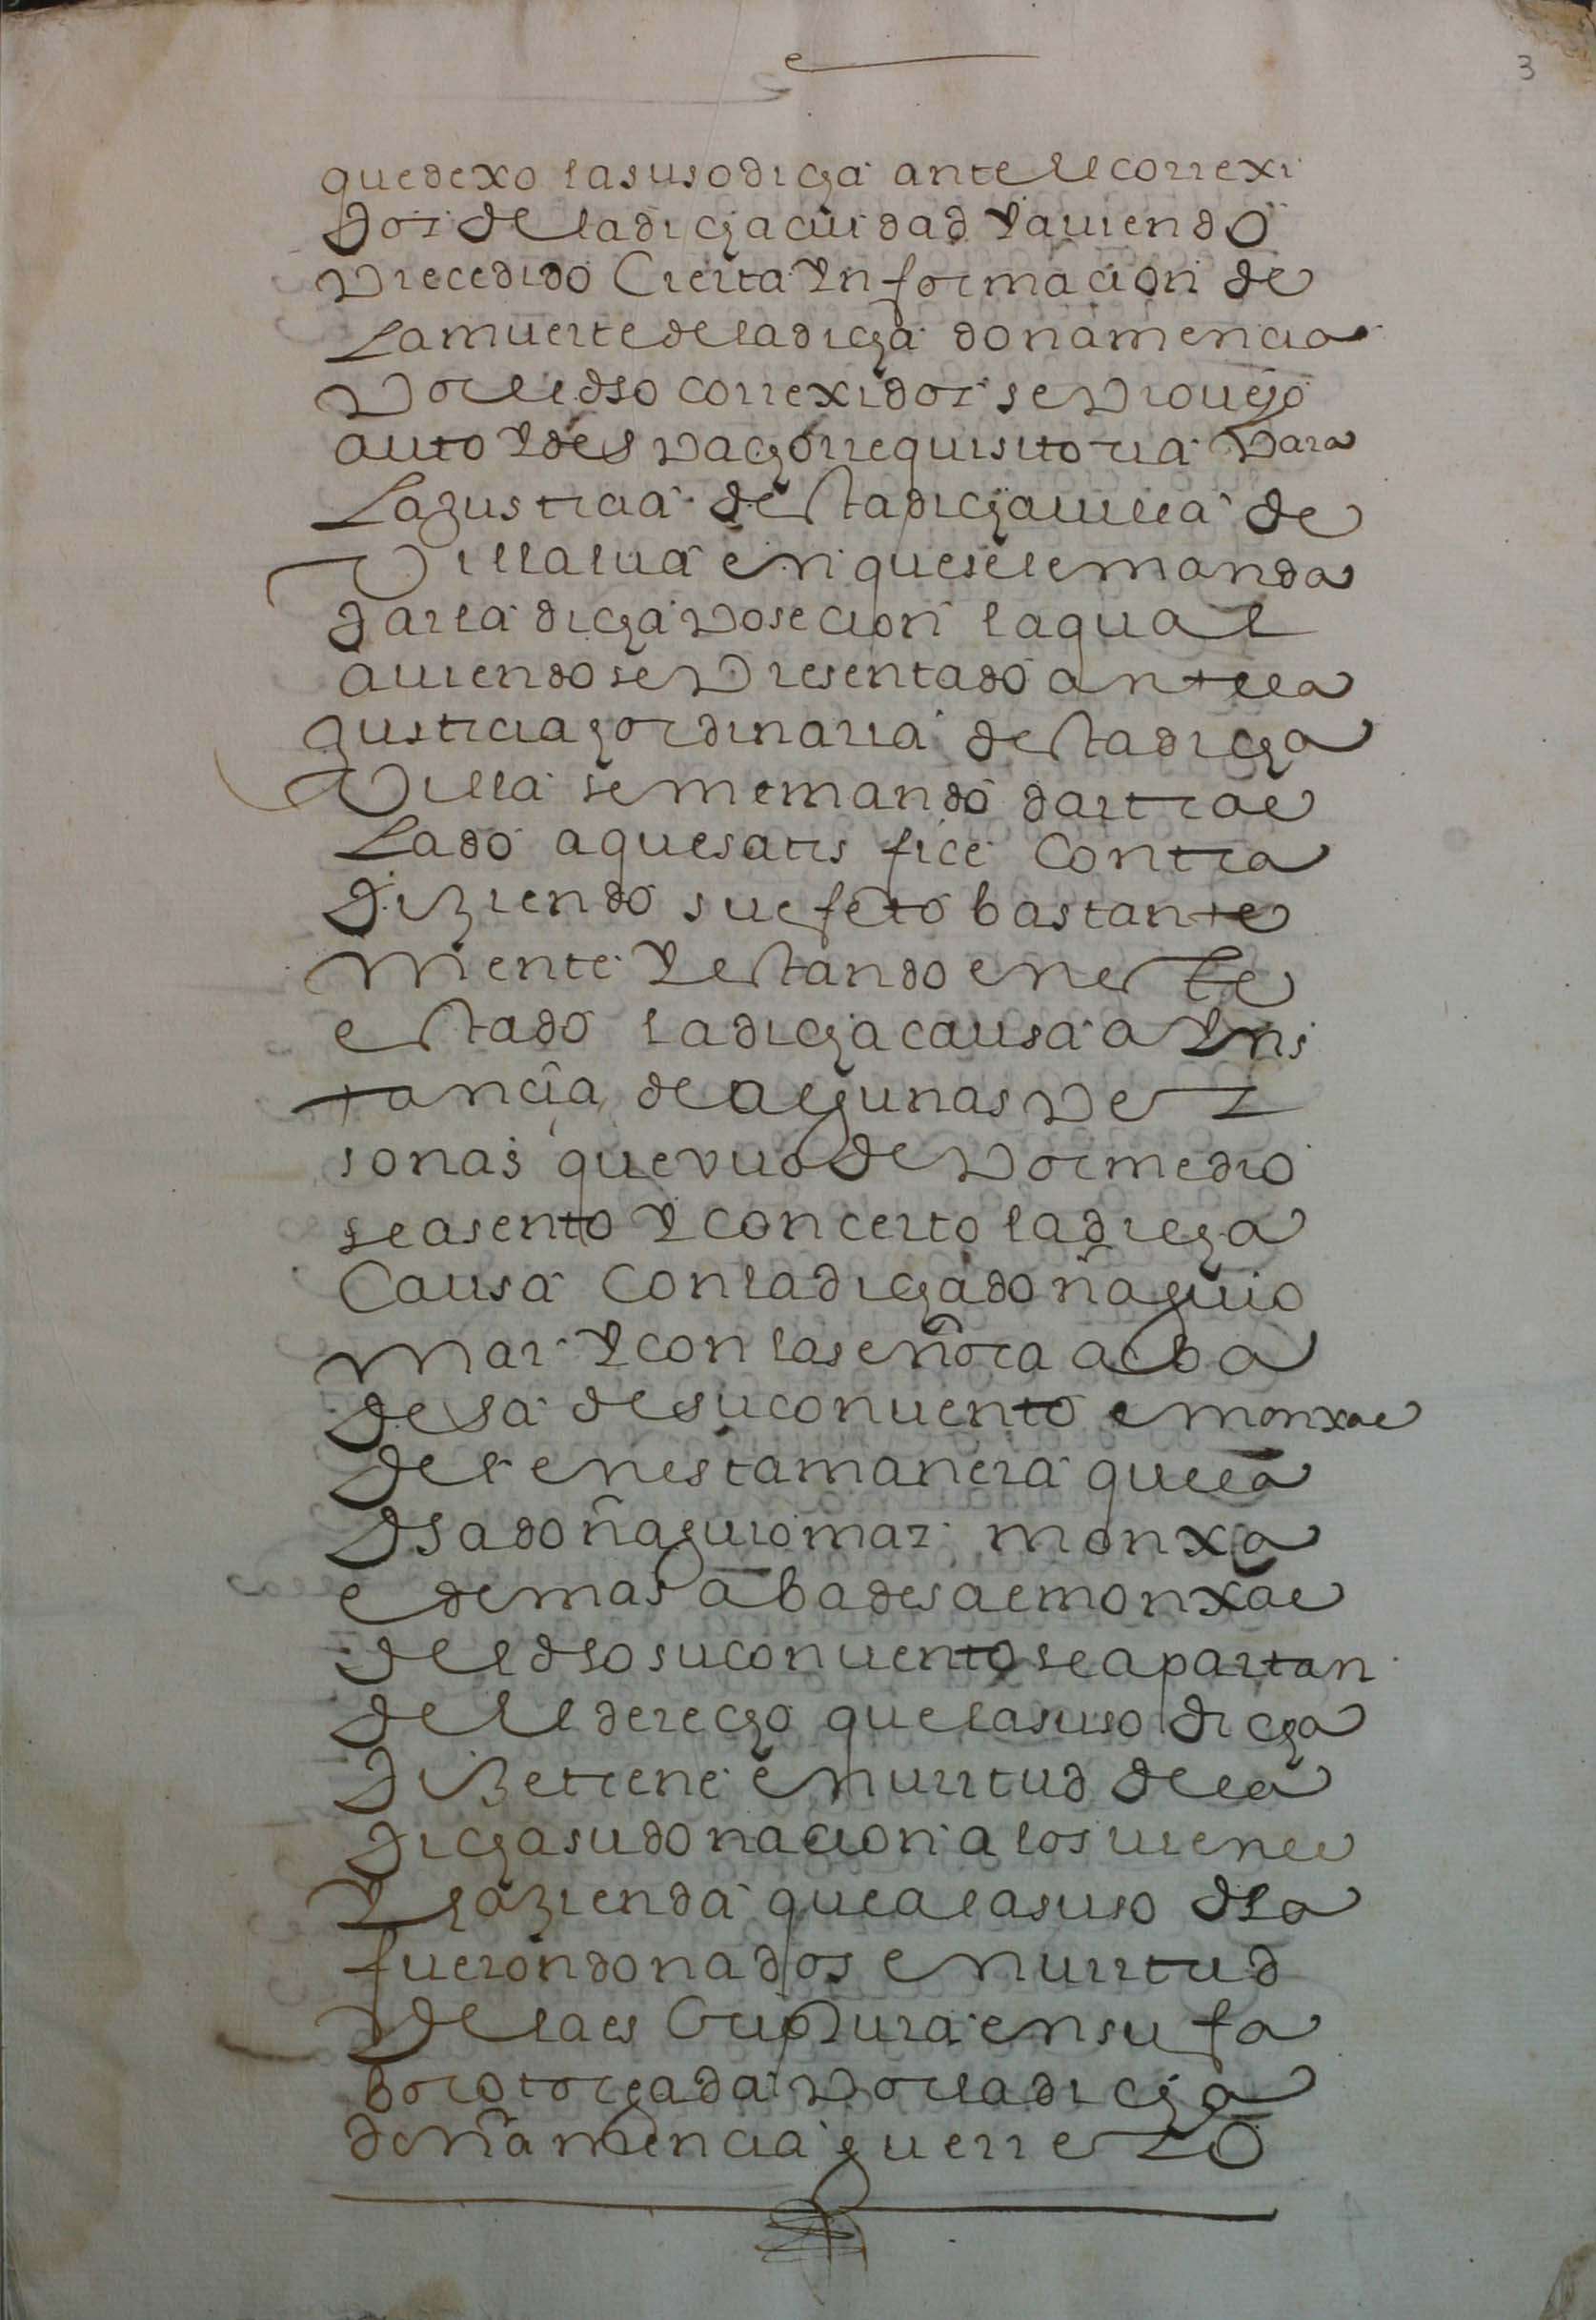 3
que dexo la susodicha ante el correxi
dor de la dicha ciudad y auiendo
precedido cierta ynformacion de
la muerte de la dicha dona mencia
por el dho correxidor se proueyo
auto y despacho rrequisitoria para
la justicia desta dicha uilla de
Villalua en que se le manda
dar la dicha posecion la qual
auiendose presentado ante la
justicia hordinaria desta dicha
Villa se me mando dar tras
lado a que satisfice contra
diziendo su efeto bastante
mente y estando en este
estado la dicha causa a yns
tancia de algunas per
sonas que vuo de por medio
se asento y concerto la dicha
causa con la dicha doña guio
mar y con la señora aba
desa de su conuento e monxas
del en esta manera que la
dha doña guiomar monxa
e demas abadesa e monxas
del dho su conuento se apartan
del derecho que la suso dicha
dize tiene en uirtud de la
dicha su donacion a los uienes
y hazienda que a la suso dha
fueron donados en uirtud
de la escriptura en su fa
bor otorgada por la dicha
doña mencia guerrero